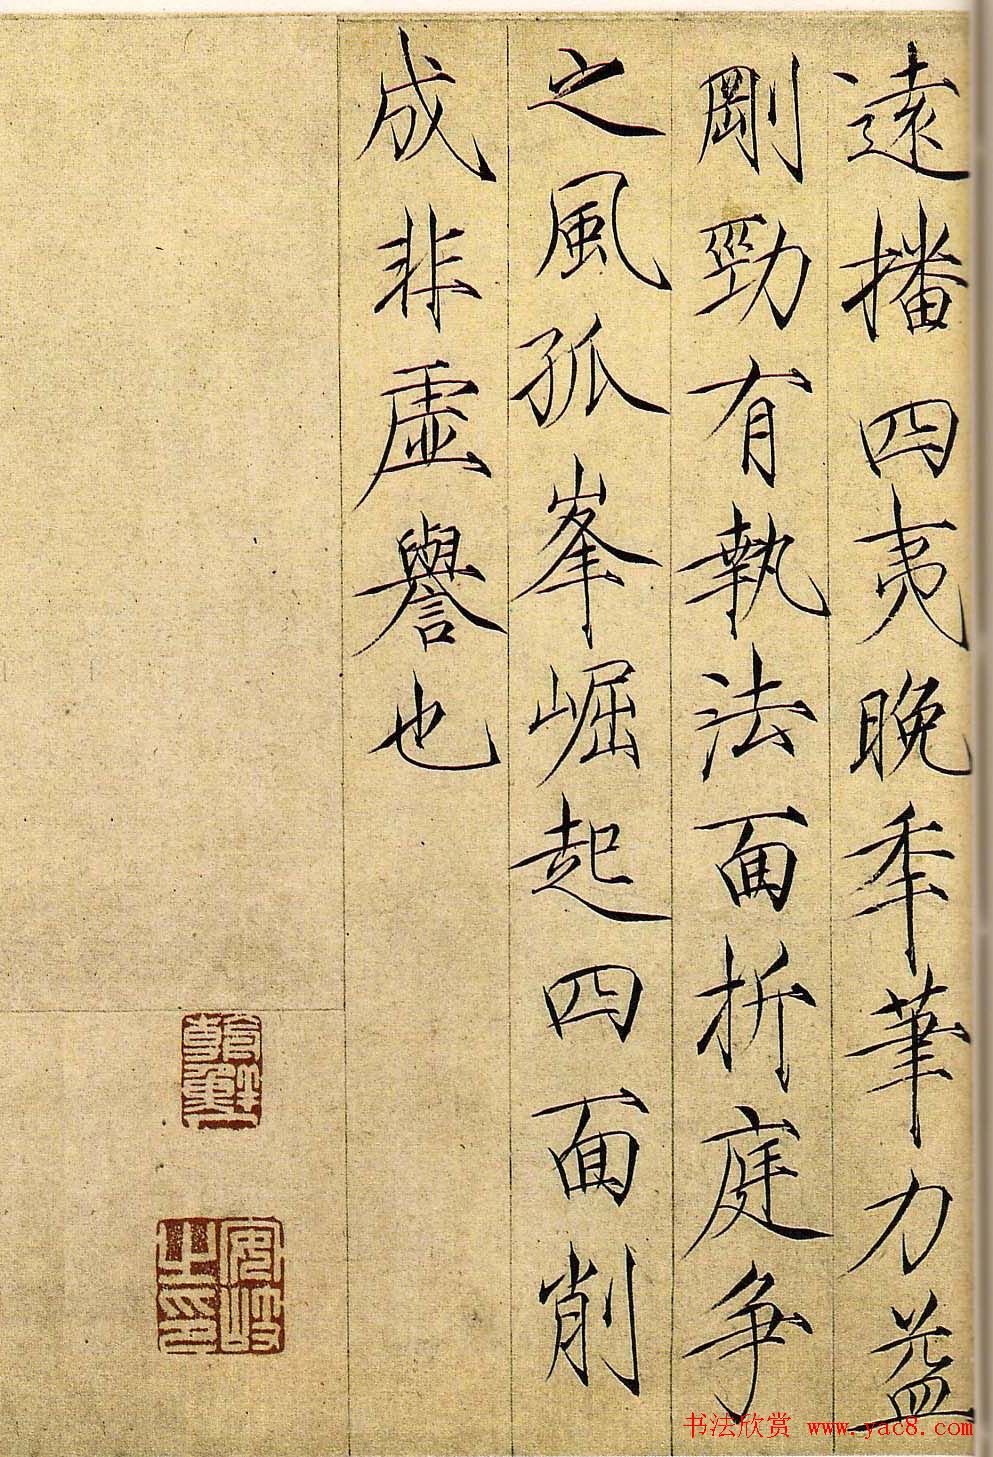 遠播四夷晚年筆力益
剛勁有執法面折庭爭
之風孤峯崛起四面削
成非虛譽也
安岐之印
书法欣赏 www.yac8.com